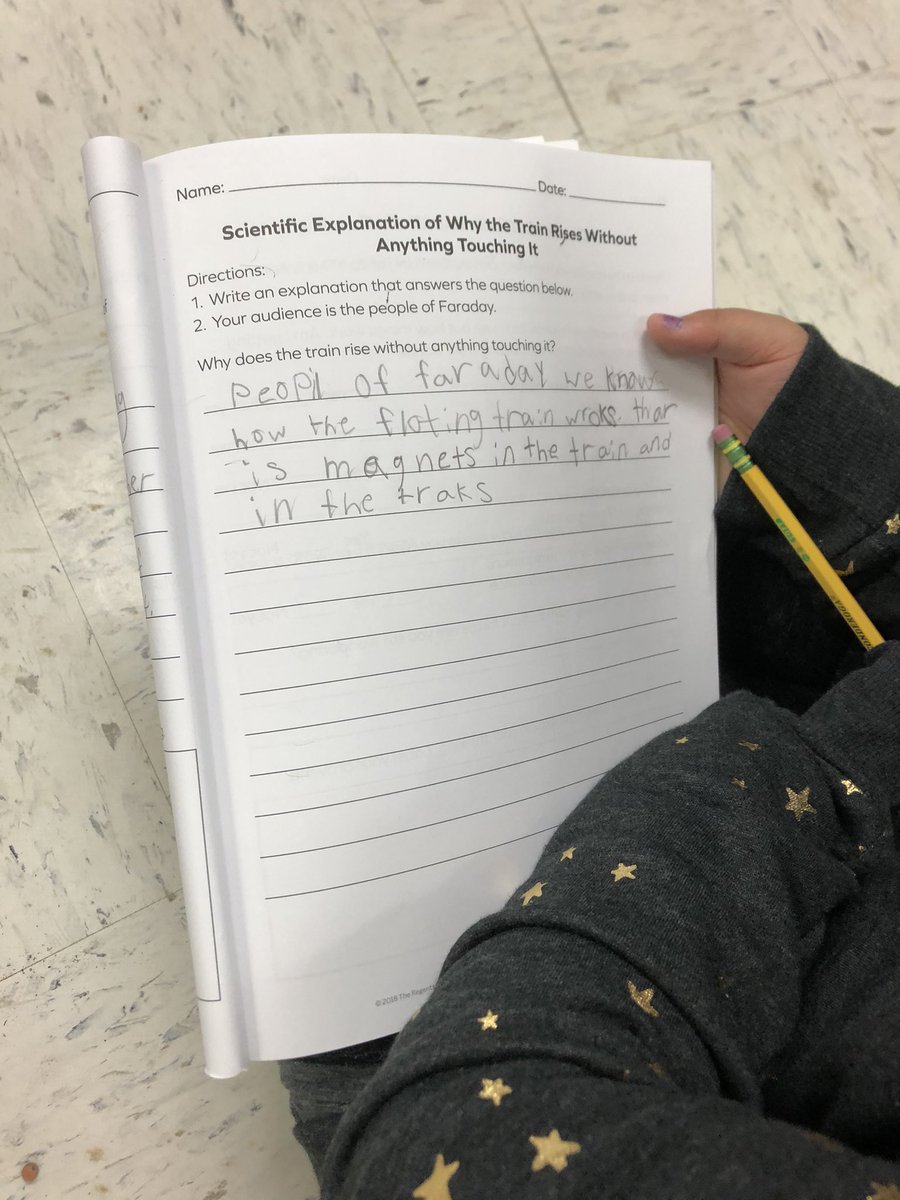 Name: Date:
Scientific Explanation of Why the Train Rises Without
Anything Touching It
Directions:
1. Write an explanation that answers the question below.
2. Your audience is the people of Faraday.
Why does the train rise without anything touching it?
Peopil of faraday we know
how the floting train wroks. thar
is magnets in the train and
in the traks
er
©2018 The Regents